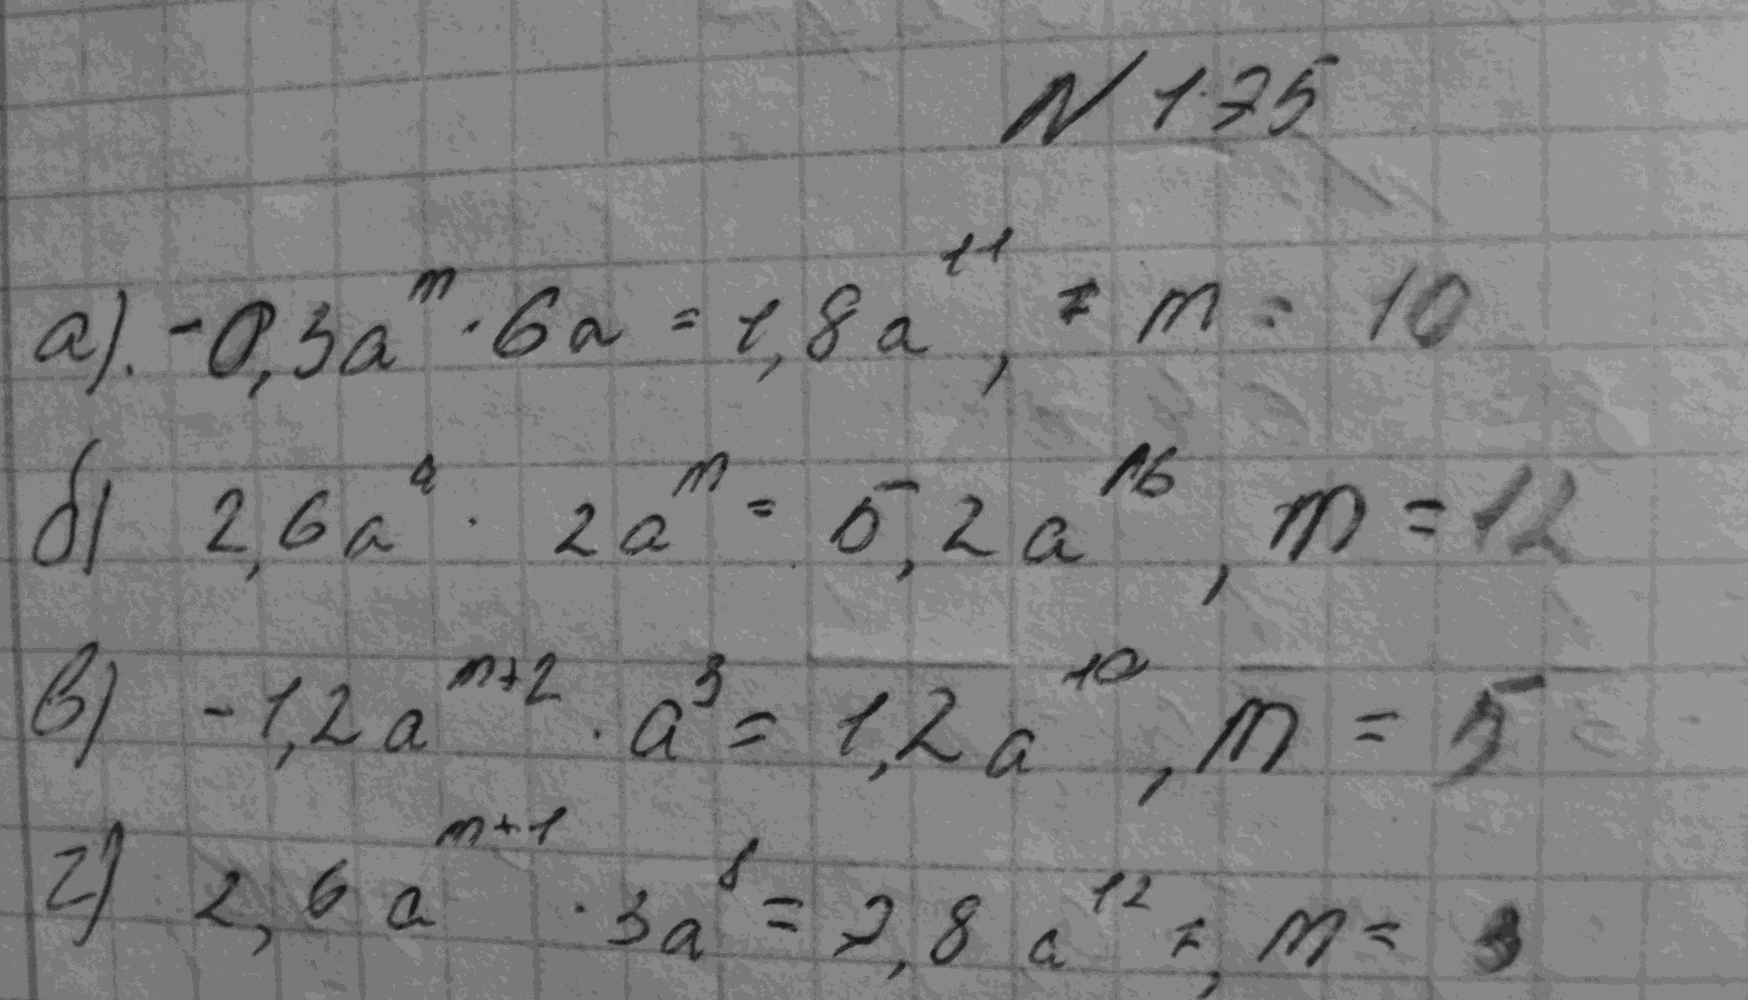 N 175
а). -0,3a^m · 6a = 1,8a^11, = m = 10
б) 2,6a^4 · 2a^m = 5,2a^16, m = 12
в) -1,2a^(m+2) · a^3 = 1,2a^10, m = 5
г) 2,6a^(m+1) · 3a^8 = 7,8a^12 =, m = 3